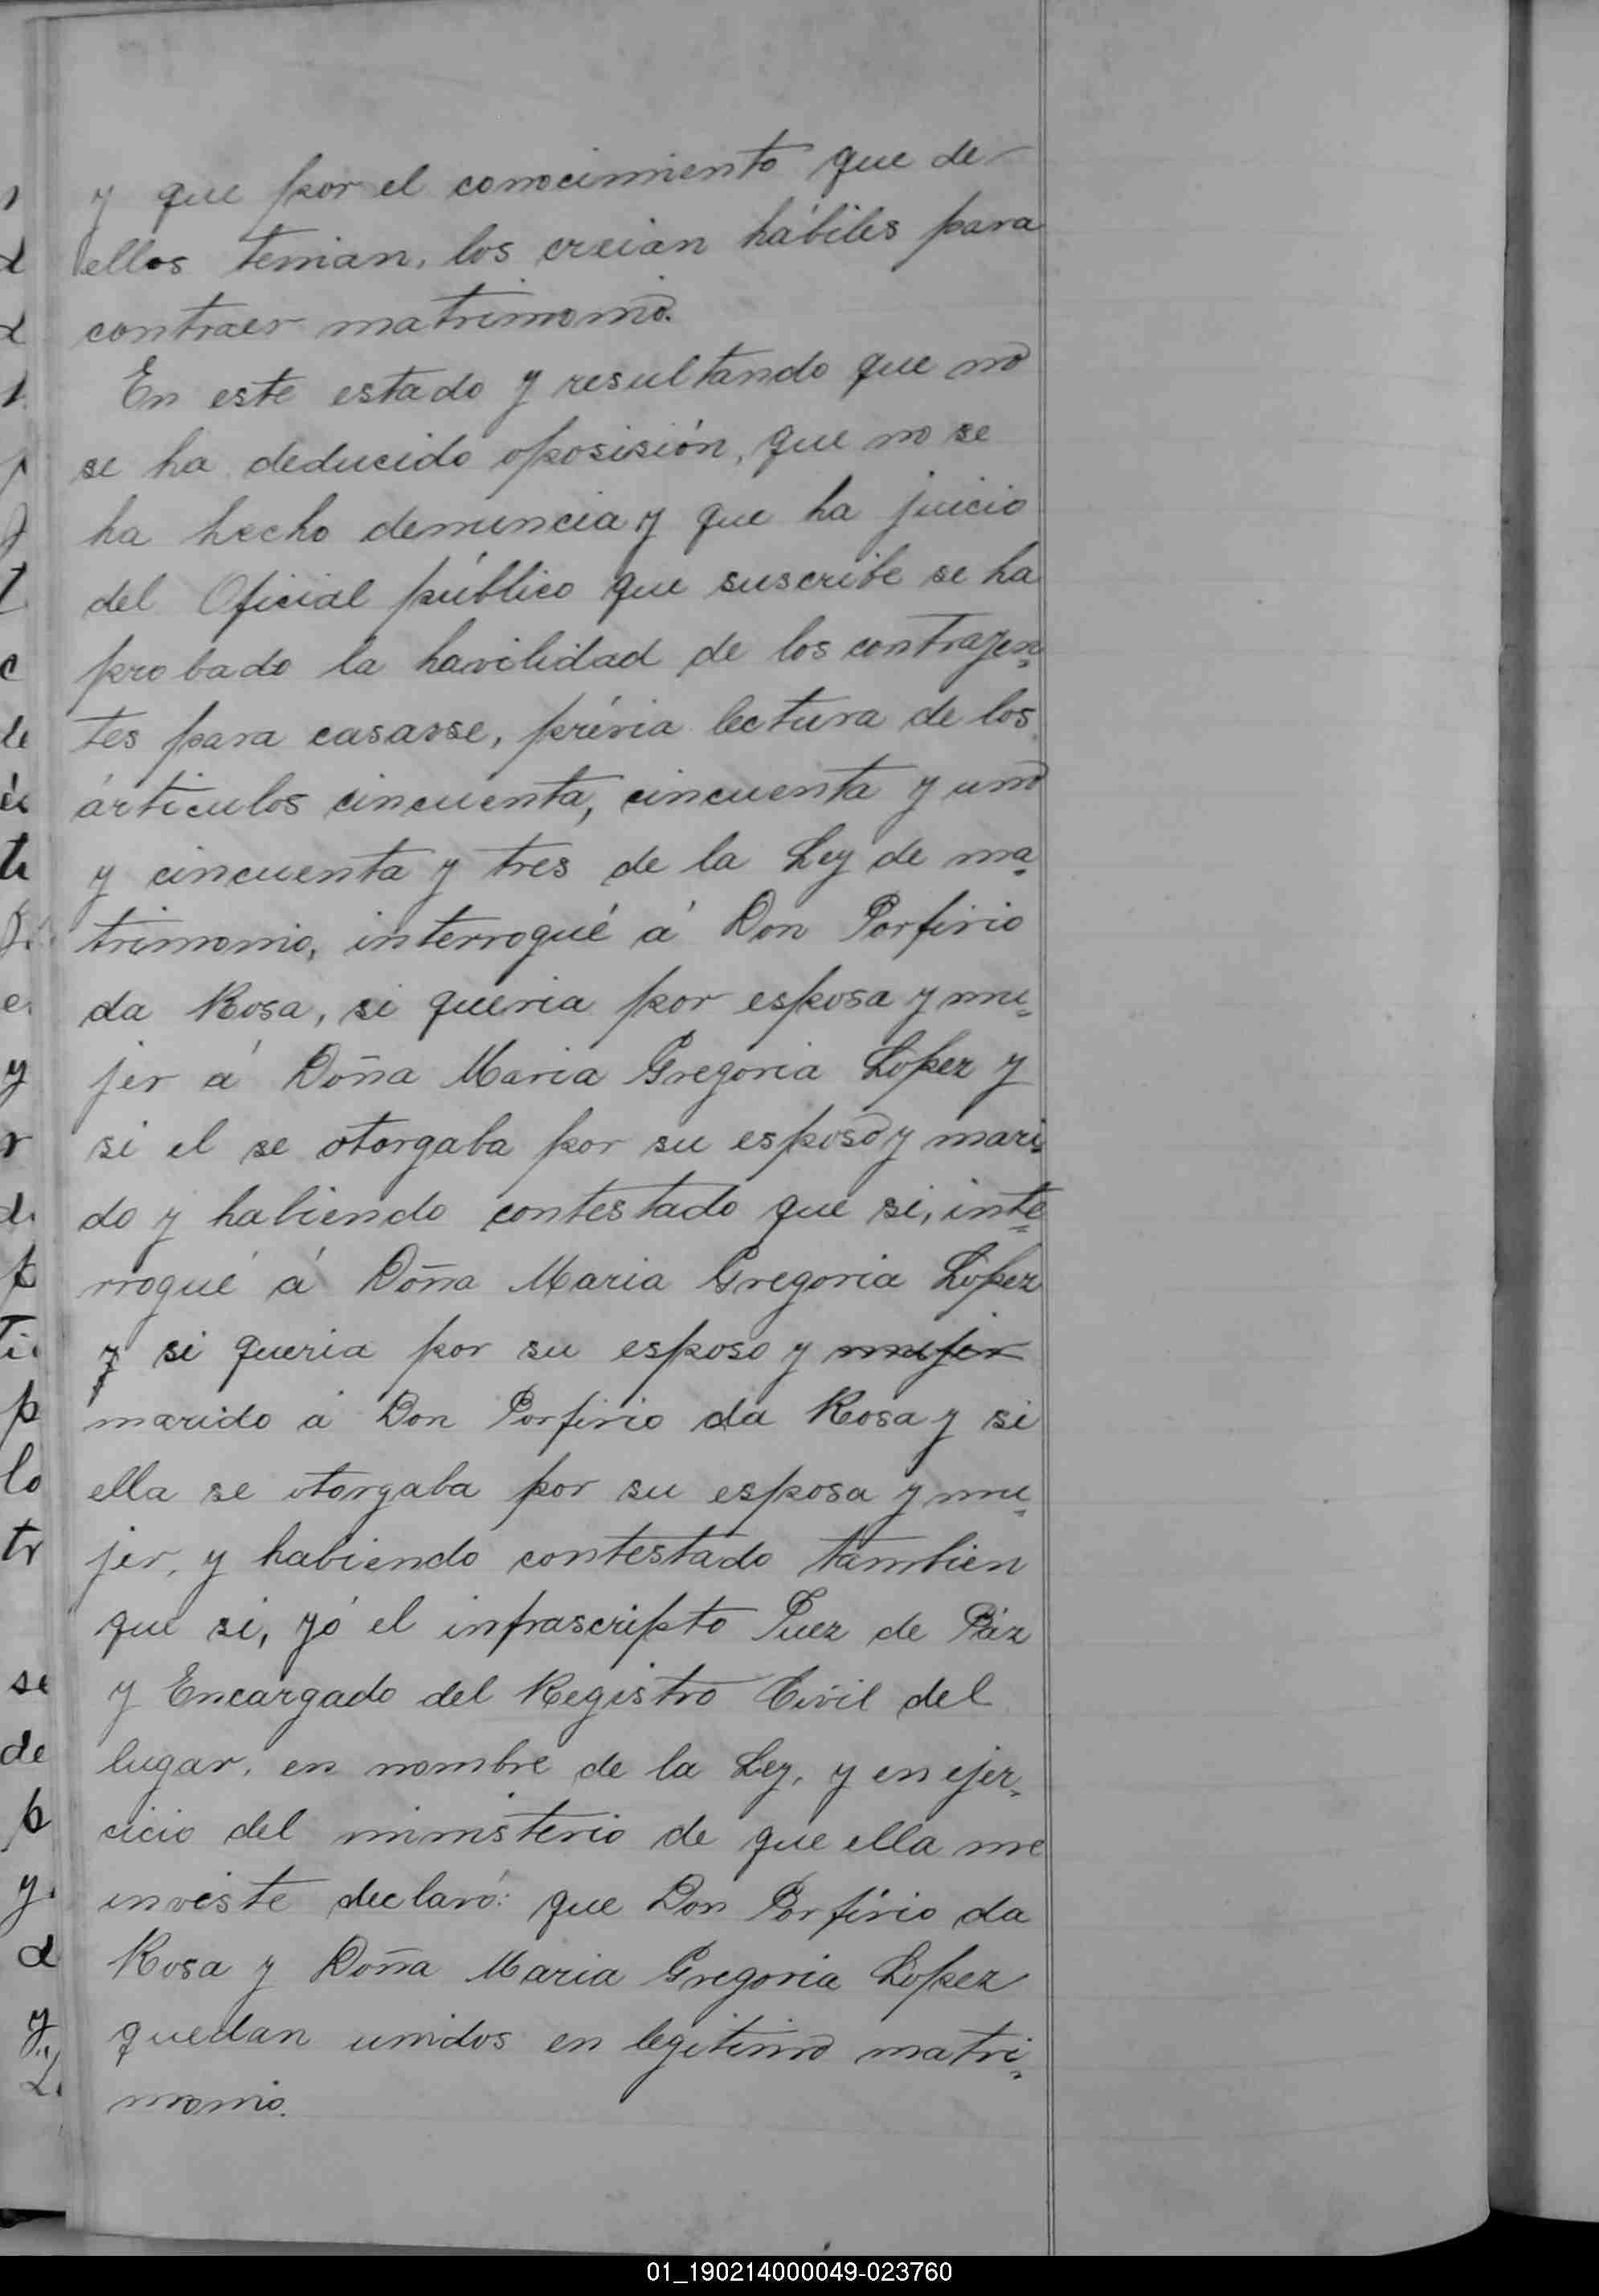 y que por el conocimiento que de
ellos tenian, los creian hábiles para
contraer matrimonio.
En este estado y resultando que no
se ha deducido oposisión, que no se
ha hecho denuncia y que ha juicio
del Oficial público que suscribe se ha
probado la havilidad de los contrayen=
tes para casarse, prévia lectura de los
árticulos cincuenta, cincuenta y uno
y cincuenta y tres de la Ley de ma=
trimonio, interrogué á Don Porfirio
da Rosa, si queria por esposa y mu=
jer á Doña Maria Gregoria Lopez y
si el se otorgaba por su esposo y mari=
do y habiendo contestado que si, inte=
rrogué á Doña Maria Gregoria Lopez
y si queria por su esposo y mujer
marido á Don Porfirio da Rosa y si
ella se otorgaba por su esposa y mu=
jer, y habiendo contestado tambien
que si, yó el infrascripto Juez de Páz
y Encargado del Registro Civil del
lugar, en nombre de la Ley, y en ejer=
cicio del ministerio de que ella me
inviste declaró: que Don Porfirio da
Rosa y Doña Maria Gregoria Lopez
quedan unidos en legitimo matri=
monio.
01_190214000049-023760